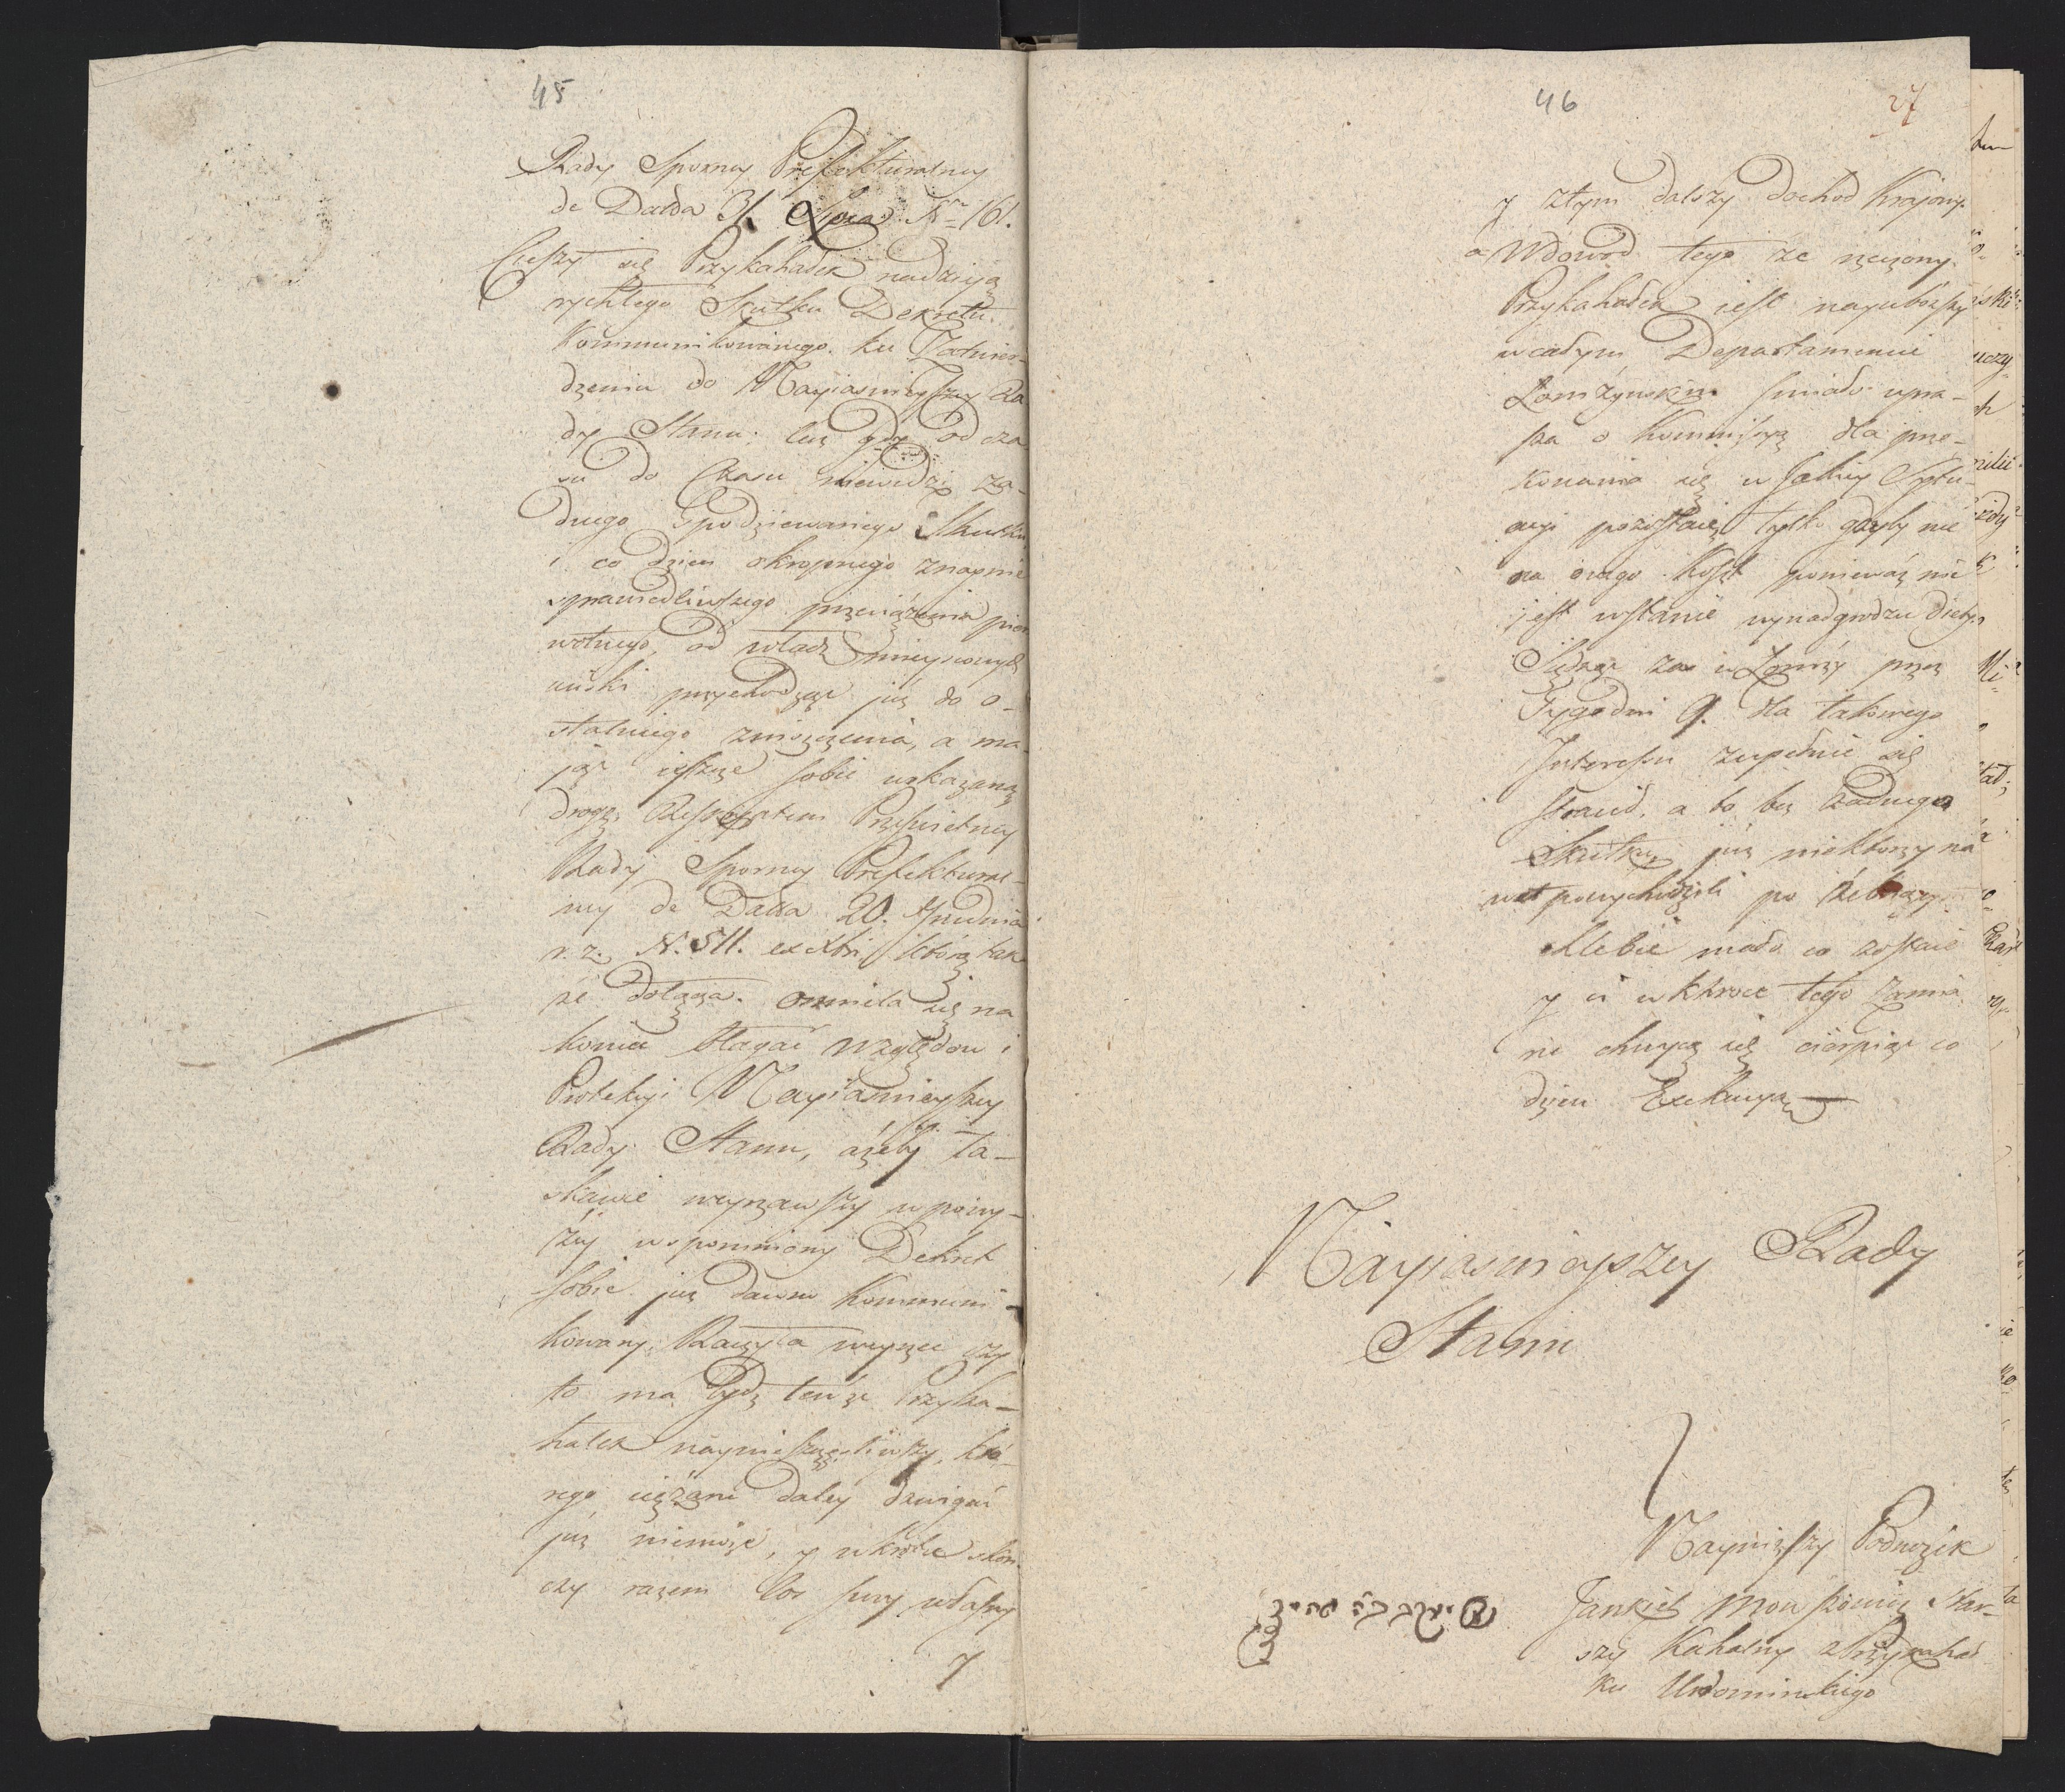 45
Rady Sporney Prefekturalney
de Datto 31. Lipca Nro 161.
Cieszy się Przykahałek nadzieją
rychłego Skutku Dekretu
Kommunikowanego ku Zatwier-
dzeniu do Nayiasnieyszey Ra
dy Stanu; lecz gdy od cza
su do Czasu niewidzi ża-
dnego spodziewanego Skutku
i co dzień okropnego znaprie
sprawiedliwszego przeciążenia pier
wotnego, od władz mieyscowych
uciski przychodząc już do o-
statniego zniszczenia, a ma-
jąc ieszcze sobie wskazaną
drogę Reskryptem Prześwietney
Rady Sporney Prefektural-
ney de Datto 20. Grudnia
r. z. N. 511. ex Xbri którą tak
że dołącza. osmiela się na
koniec błagać względow i
Protekcyi Nayiasnieyszey
Rady Stanu, ażeby ła-
skawie weyrzawszy w powy-
żey wspomniony Dekret
sobie już dawno Kommuni-
kowany, Raczyła wyrzec czy
to ma bydź tenże Przyka-
hałek nayniesczęśliwszy, któ-
rego ciężaru daley dzwigać
już niemoże, y wkrótce skoń
czy razem los swoy własny
y
46
27
y ztym dalszy dochod Krajowy.
a Wdowod tego że rzeczony
Przykahałek iest nayuboższy
w całym Departamencie
Łomżynskim smiało upra-
sza o Kommissyą dla prze-
konania się w Jakiey Sytu-
acyi pozostaie, tylko gdyby nie
na onego Koszt ponieważ nie
jest wstanie wynadgrodzić Diety,
Siedząc zas w Łomży przez
Tygodni 9. dla takowego
Interessu zupełnie się
stracił, a to bez żadnego
Skutku, już niektorzy na
wet powychodzili po żebrzyzy
chlebie mało co zostaie
y ci wkrotce tego zamia
ru chwycą się cierpiąc co
dzien Exekucyą
Nayiasnieyszey Rady
Stanu
Nayniższy Podnożek
Jankiel Mowszowicz Star-
szy Kahalny z Przykahał
ku Wdominskiego